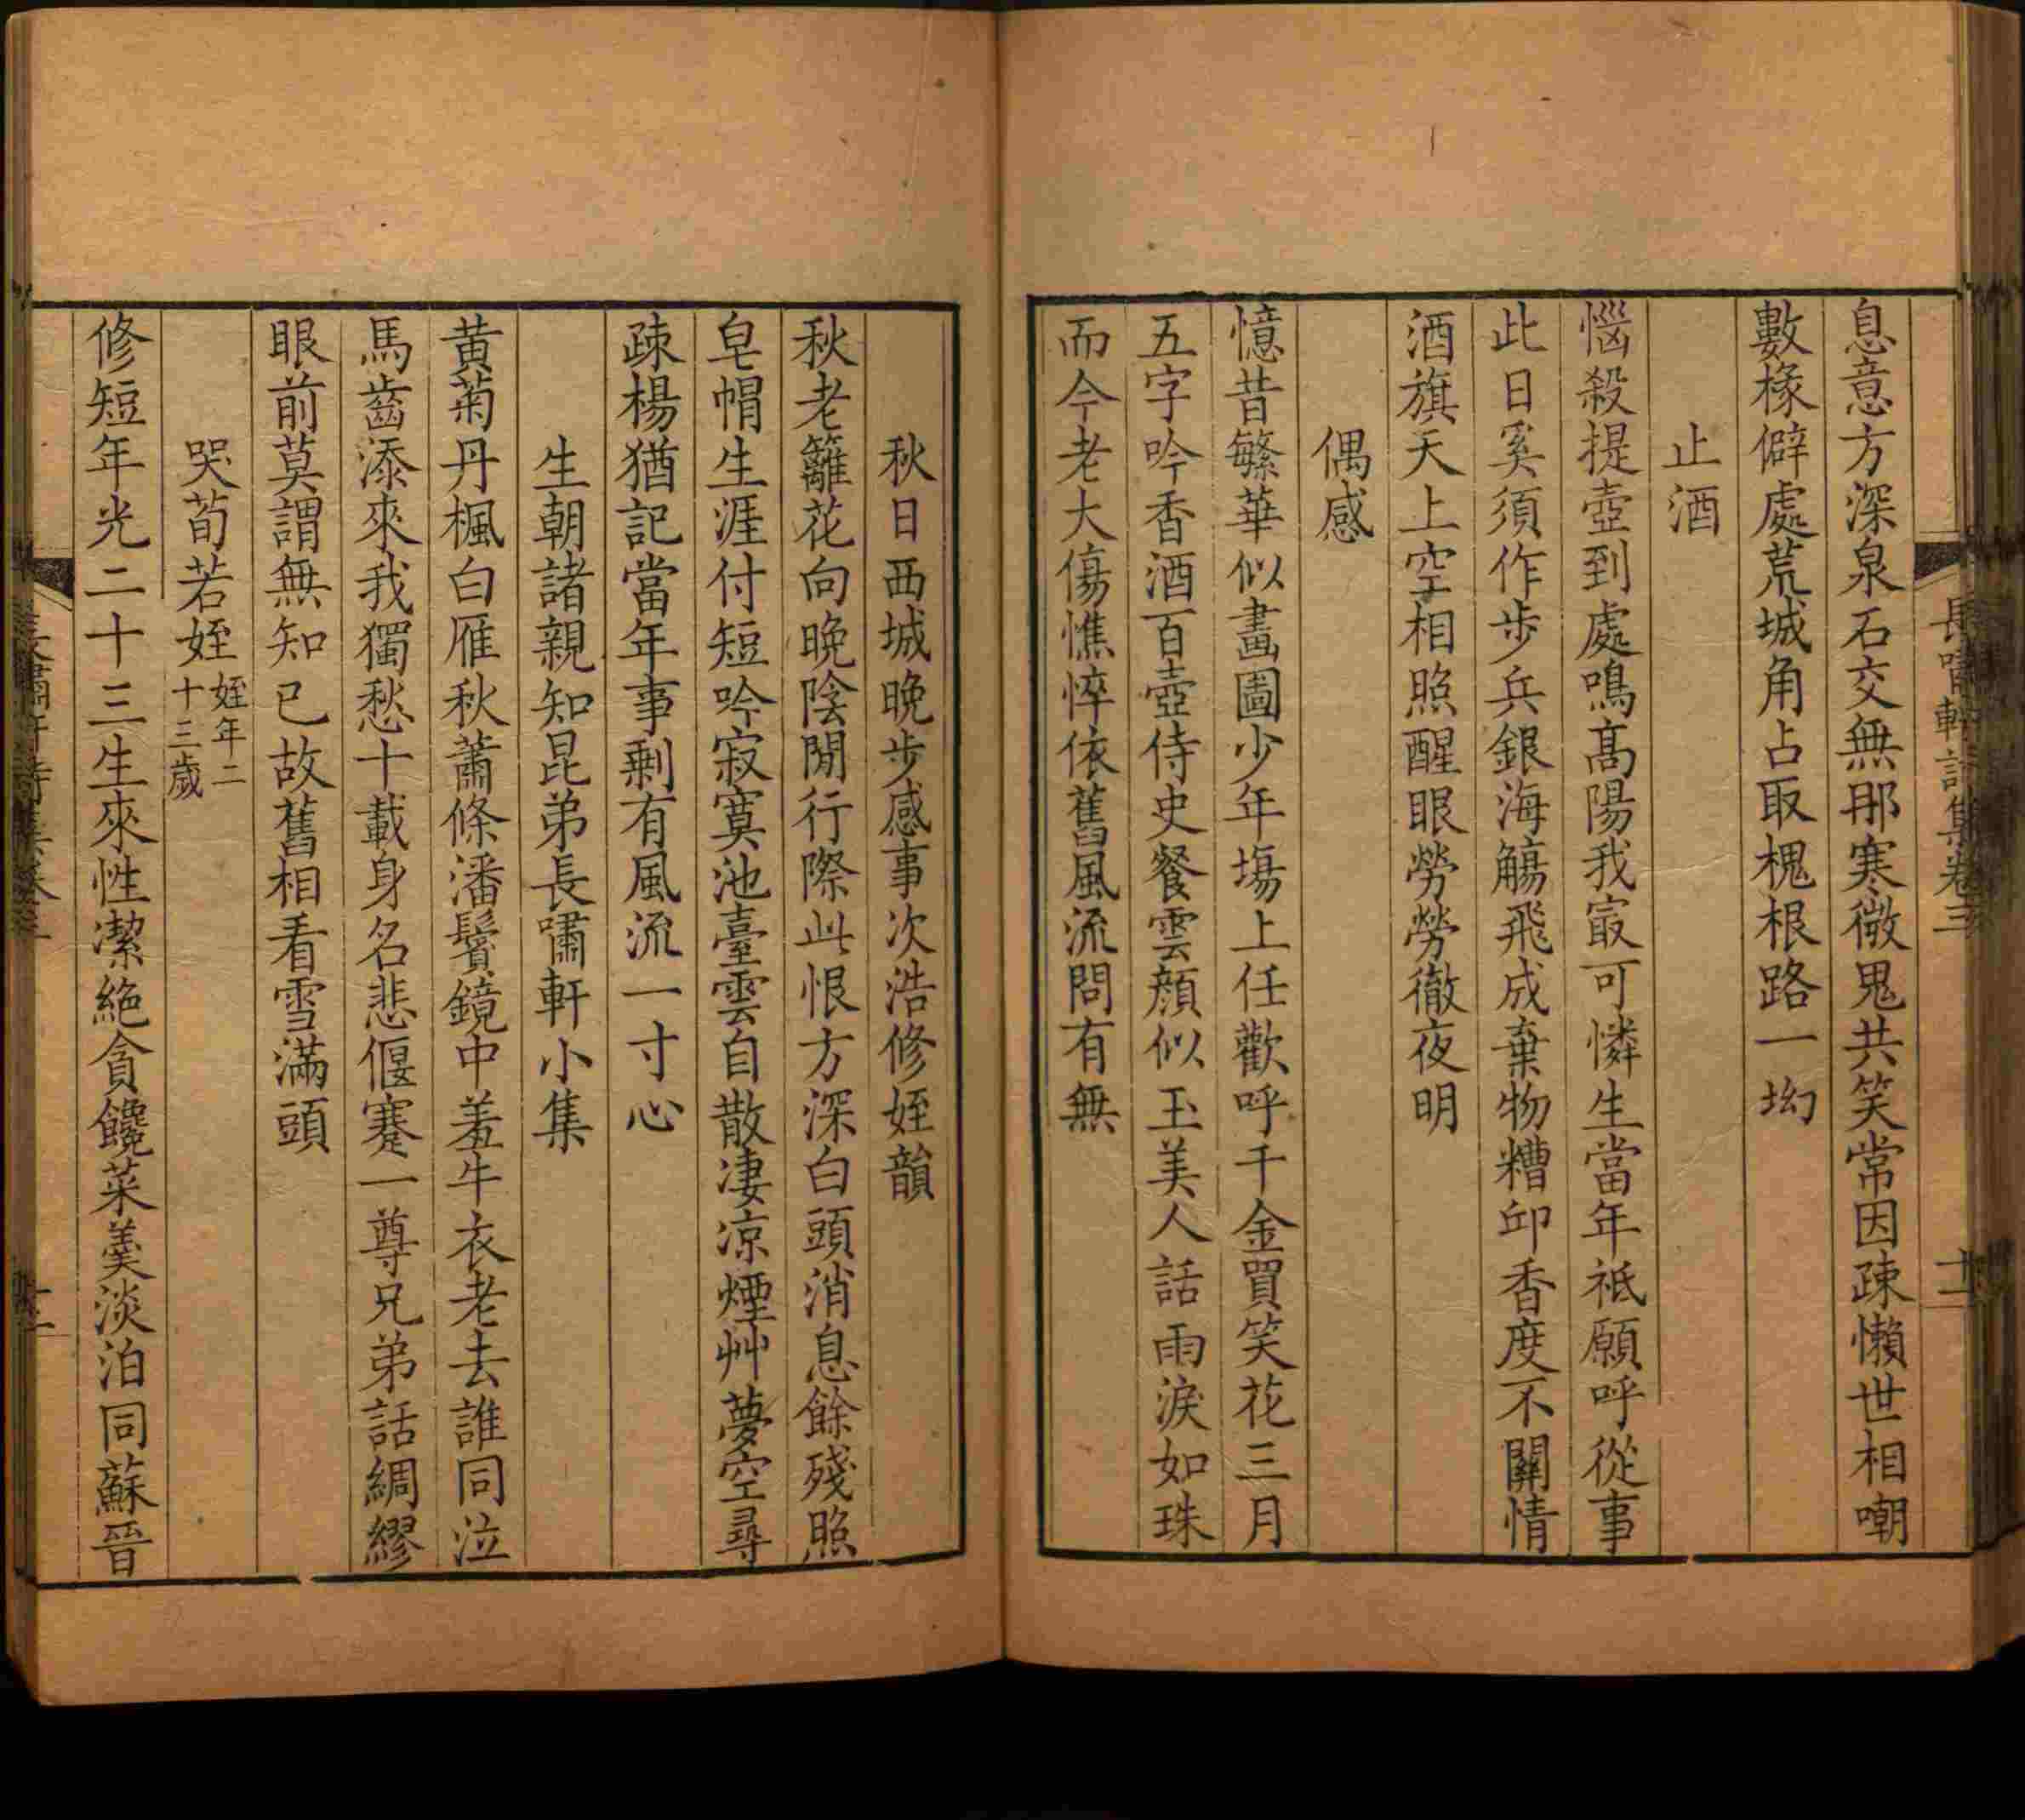 長嘯軒詩集卷三
十一
息意方深泉石交無那寒微鬼共笑常因疎懶世相嘲
數椽僻處荒城角占取槐根路一坳
止酒
惱殺提壺到處鳴髙陽我㝡可憐生當年祗願呼從事
此日奚須作步兵銀海觴飛成棄物糟邱香度不關情
酒旗天上空相照醒眼勞勞徹夜明
偶感
憶昔繁華似畫圖少年塲上任歡呼千金買笑花三月
五字吟香酒百壺侍史餐雲顔似玉美人話雨淚如珠
而今老大傷憔悴依舊風流問有無
秋日西城晚步感事次浩修姪韻
秋老籬花向晚陰閒行際此恨方深白頭消息餘殘照
皂帽生涯付短吟寂寞池臺雲自散凄凉煙艸夢空尋
疎楊猶記當年事剩有風流一寸心
生朝諸親知昆弟長嘯軒小集
黄菊丹楓白雁秋蕭條潘鬢鏡中羞牛衣老去誰同泣
馬齒添來我獨愁十載身名悲偃蹇一尊兄弟話綢繆
眼前莫謂無知已故舊相看雪滿頭
哭荀若姪姪年二十三歲
修短年光二十三生來性潔絶貪饞菜羹淡泊同蘇晉
長嘯軒詩集卷三